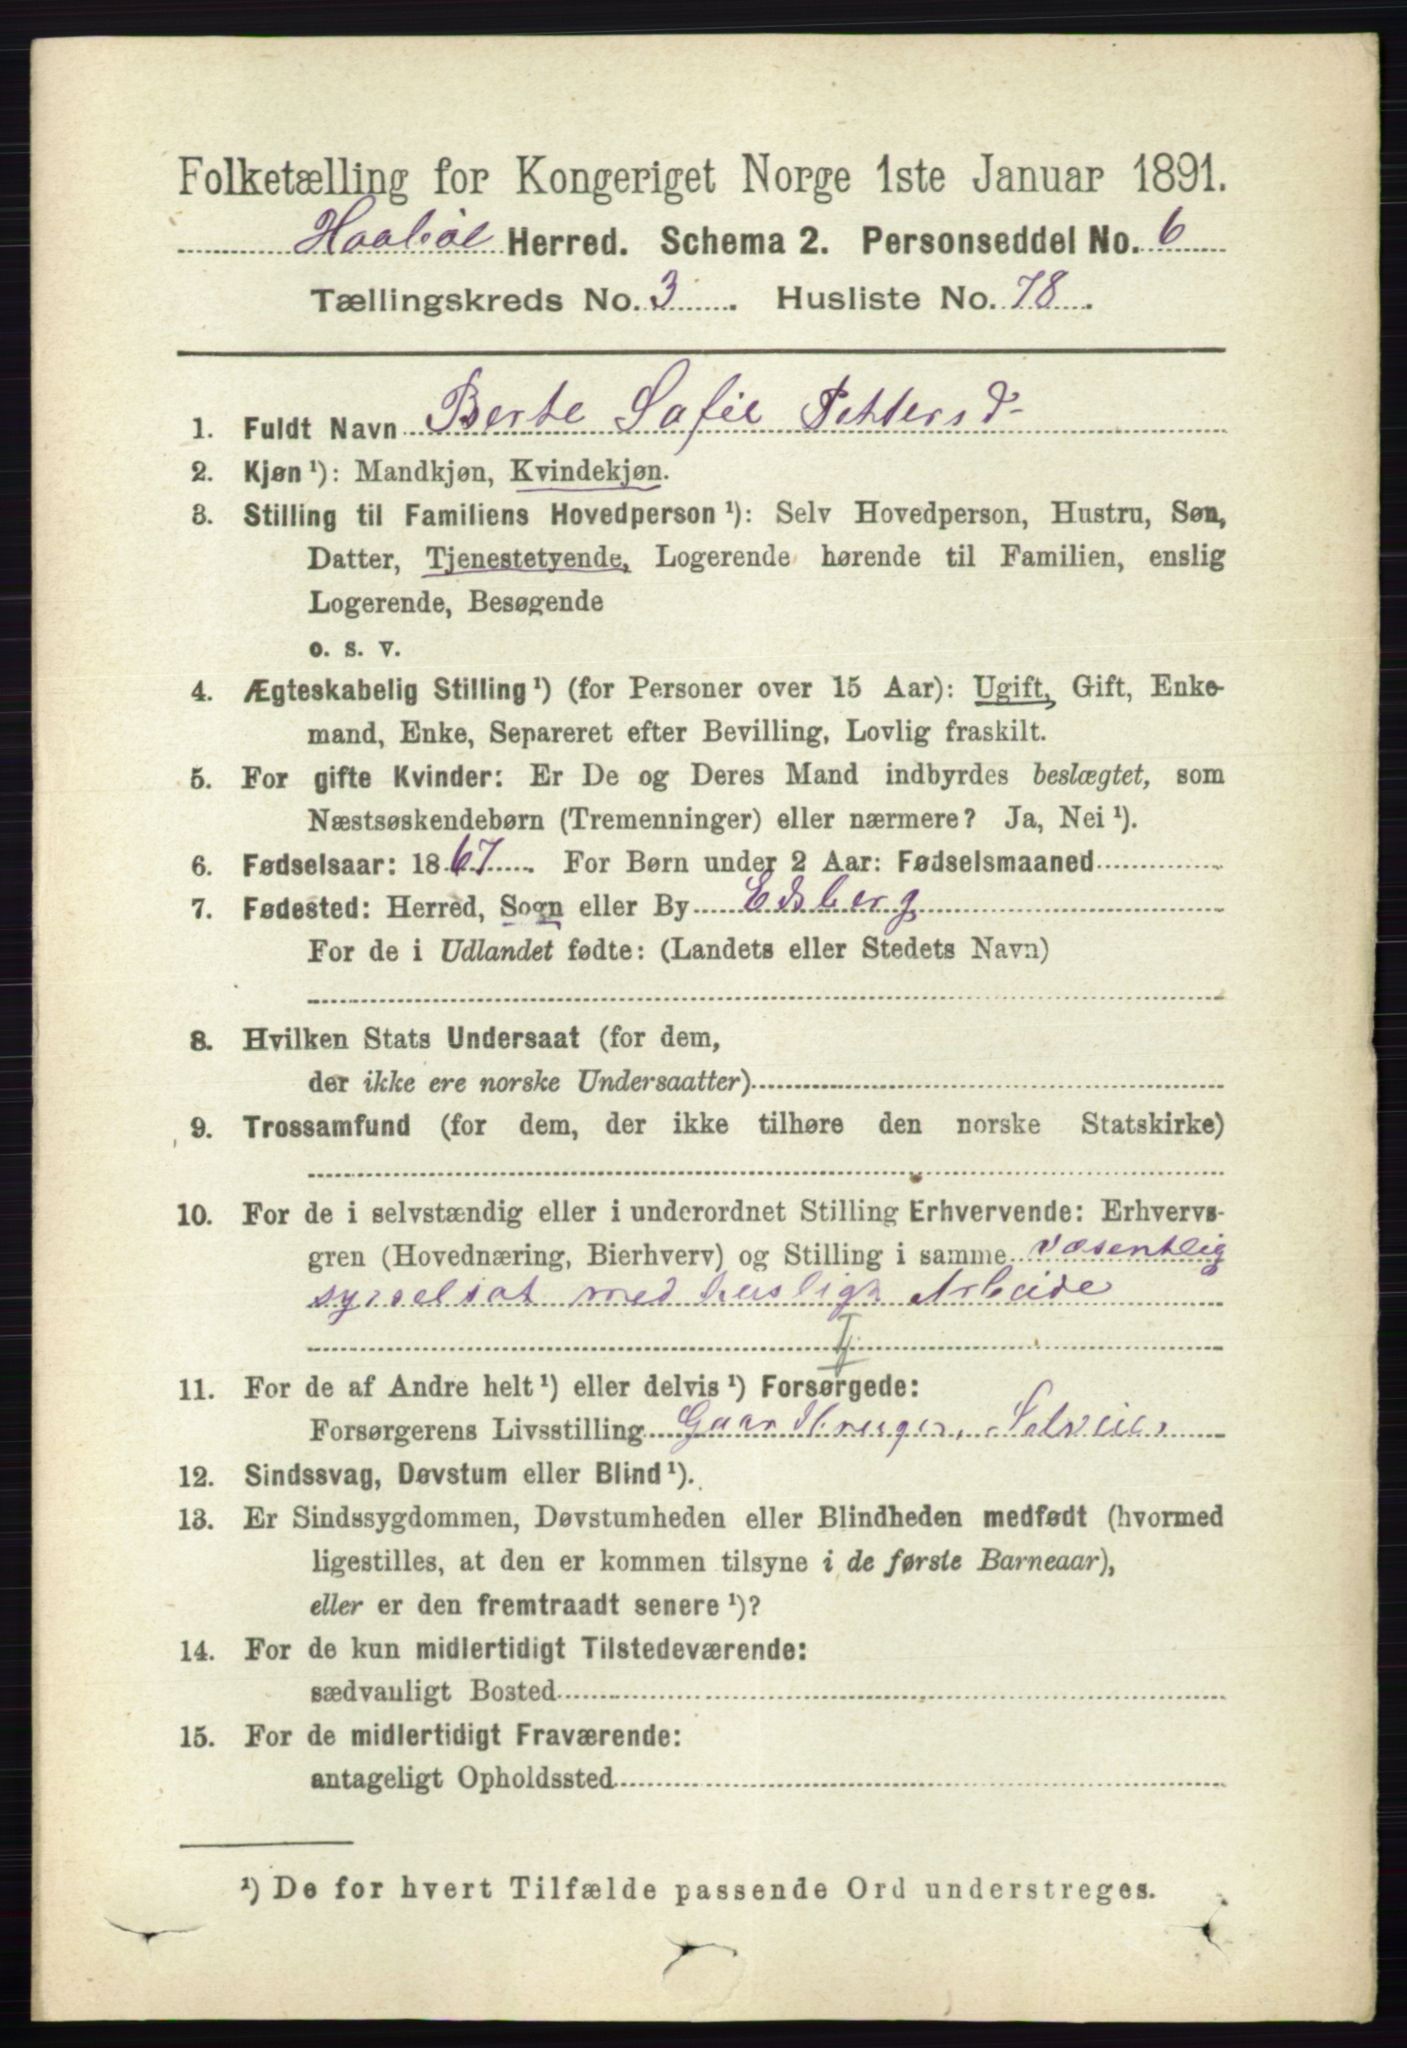 Folketælling for Kongeriget Norge 1ste Januar 1891.
Haabøl Herred. Schema 2. Personseddel No. 6
Tællingskreds No. 3. Husliste No. 78.
1. Fuldt Navn Berte Sofie Pettersd
2. Kjøn ¹): Mandkjøn, Kvindekjøn.
3. Stilling til Familiens Hovedperson ¹): Selv Hovedperson, Hustru, Søn,
Datter, Tjenestetyende, Logerende hørende til Familien, enslig
Logerende, Besøgende
o. s. v.
4. Ægteskabelig Stilling ¹) (for Personer over 15 Aar): Ugift, Gift, Enke-
mand, Enke, Separeret efter Bevilling, Lovlig fraskilt.
5. For gifte Kvinder: Er De og Deres Mand indbyrdes beslægtet, som
Næstsøskendebørn (Tremenninger) eller nærmere? Ja, Nei ¹).
6. Fødselsaar: 1867. For Børn under 2 Aar: Fødselsmaaned
7. Fødested: Herred, Sogn eller By Edsberg
For de i Udlandet fødte: (Landets eller Stedets Navn)
8. Hvilken Stats Undersaat (for dem,
der ikke ere norske Undersaatter)
9. Trossamfund (for dem, der ikke tilhøre den norske Statskirke)
10. For de i selvstændig eller i underordnet Stilling Erhvervende: Erhvervs-
gren (Hovednæring, Bierhverv) og Stilling i samme væsentlig
sysselsat med husligt Arbeide
11. For de af Andre helt ¹) eller delvis ¹) Forsørgede:
Forsørgerens Livsstilling Gaardbruger, Selveier
12. Sindssvag, Døvstum eller Blind ¹).
13. Er Sindssygdommen, Døvstumheden eller Blindheden medfødt (hvormed
ligestilles, at den er kommen tilsyne i de første Barneaar),
eller er den fremtraadt senere ¹)?
14. For de kun midlertidigt Tilstedeværende:
sædvanligt Bosted
15. For de midlertidigt Fraværende:
antageligt Opholdssted
¹) De for hvert Tilfælde passende Ord understreges.